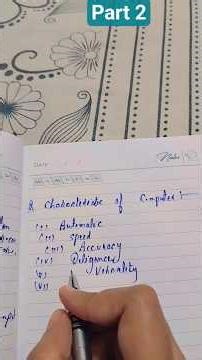 Part 2
Date
Q Characteristic of Computer :-
(i) Automatic
(ii) Speed
(iii) Accuracy
(iv) Diligence
(v) Versatility
(vi)